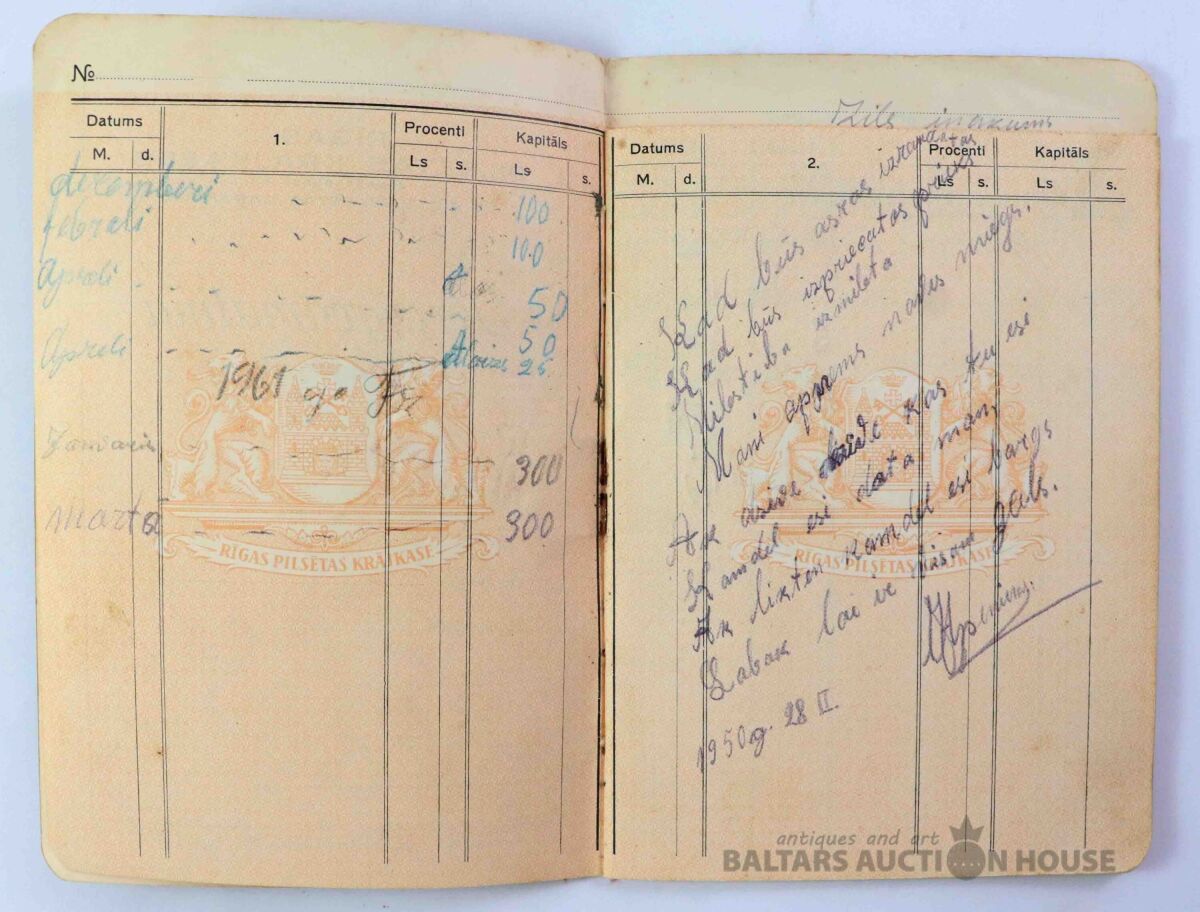 №
Datums
1.
Procenti
Kapitāls
M. d.
Ls s.
Ls s.
decemberi 100
febrali 100
Aprali 50
Aprali 50
Aloize 25
1961
Janvaris 300
Marta 300
RIGAS PILSĒTAS KRĀJKASE
Zils
Datums
2.
Procenti
Kapitāls
M. d.
Ls s.
Ls s.
Kad būs asras izraudatas
Kad būs izpriecatas prieks
Milestiba izmileta
Mani apņems nāves miegs.
Ak dzive kas tu esi
Kamdēl esi dota man,
Ak likten kamdēl esi bargs
Labak lai ir visam gals.
1950g. 28 II.
RIGAS PILSĒTAS KRĀJKASE
antiques and art
BALTARS AUCTION HOUSE